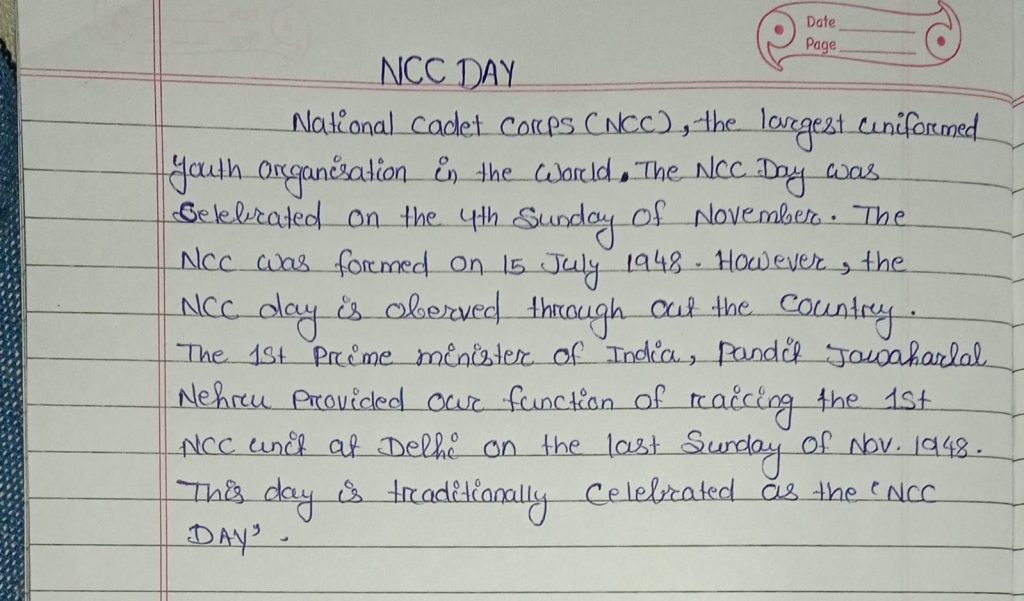 Date
Page
NCC DAY
National Cadet Corps (NCC), the largest uniformed
youth organisation in the world. The NCC Day was
Celebrated on the 4th Sunday of November. The
NCC was formed on 15 July 1948. However, the
NCC day is oberved through out the country.
The 1st Prime minister of India, Pandit Jawaharlal
Nehru Provided our function of raicing the 1st
NCC unit at Delhi on the last Sunday of Nov. 1948.
This day is traditionally Celebrated as the 'NCC
DAY'.